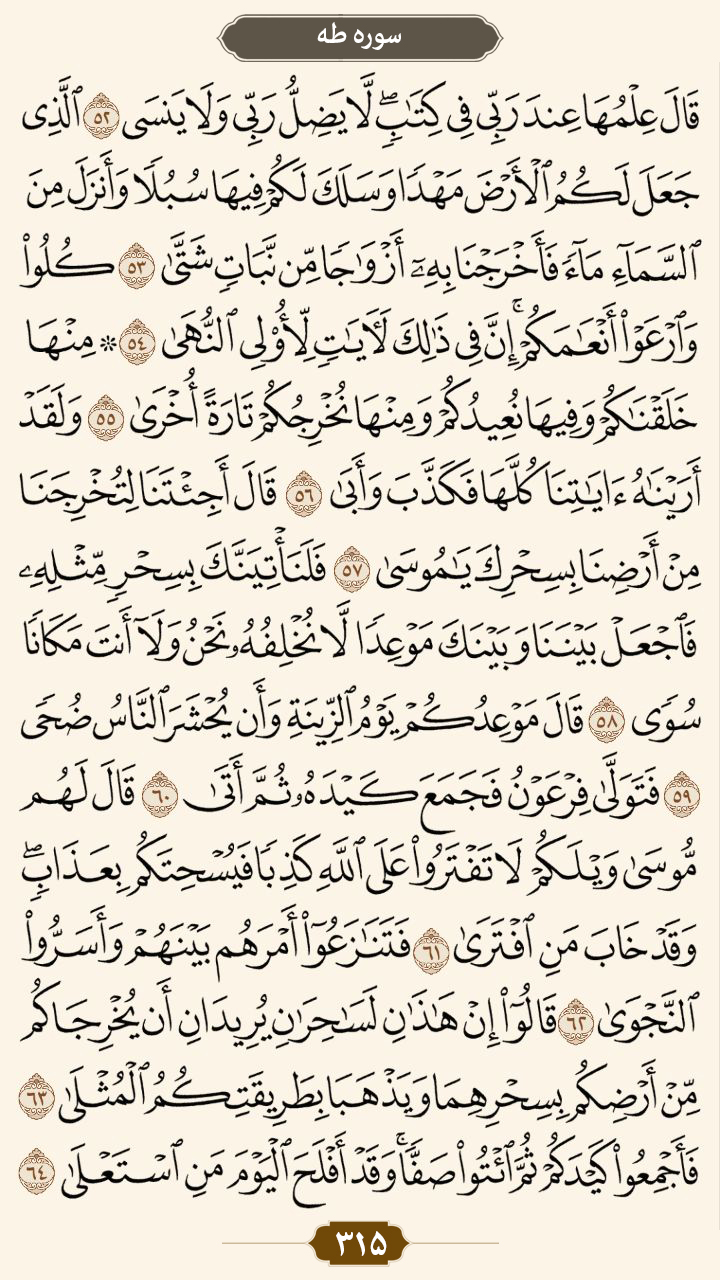 سوره طه
قَالَ عِلْمُهَا عِندَ رَبِّى فِى كِتَٰبٍۖ لَّا يَضِلُّ رَبِّى وَلَا يَنسَى ٥٢ ٱلَّذِى
جَعَلَ لَكُمُ ٱلْأَرْضَ مَهْدًا وَسَلَكَ لَكُمْ فِيهَا سُبُلًا وَأَنزَلَ مِنَ
ٱلسَّمَآءِ مَآءً فَأَخْرَجْنَا بِهِۦٓ أَزْوَٰجًا مِّن نَّبَاتٍ شَتَّىٰ ٥٣ كُلُوا۟
وَٱرْعَوْا۟ أَنْعَٰمَكُمْۚ إِنَّ فِى ذَٰلِكَ لَءَايَٰتٍ لِّأُو۟لِى ٱلنُّهَىٰ ٥٤ ۞ مِنْهَا
خَلَقْنَٰكُمْ وَفِيهَا نُعِيدُكُمْ وَمِنْهَا نُخْرِجُكُمْ تَارَةً أُخْرَىٰ ٥٥ وَلَقَدْ
أَرَيْنَٰهُ ءَايَٰتِنَا كُلَّهَا فَكَذَّبَ وَأَبَىٰ ٥٦ قَالَ أَجِئْتَنَا لِتُخْرِجَنَا
مِنْ أَرْضِنَا بِسِحْرِكَ يَٰمُوسَىٰ ٥٧ فَلَنَأْتِيَنَّكَ بِسِحْرٍ مِّثْلِهِۦ
فَٱجْعَلْ بَيْنَنَا وَبَيْنَكَ مَوْعِدًا لَّا نُخْلِفُهُۥ نَحْنُ وَلَآ أَنتَ مَكَانًا
سُوًى ٥٨ قَالَ مَوْعِدُكُمْ يَوْمُ ٱلزِّينَةِ وَأَن يُحْشَرَ ٱلنَّاسُ ضُحًى
٥٩ فَتَوَلَّىٰ فِرْعَوْنُ فَجَمَعَ كَيْدَهُۥ ثُمَّ أَتَىٰ ٦٠ قَالَ لَهُم
مُّوسَىٰ وَيْلَكُمْ لَا تَفْتَرُوا۟ عَلَى ٱللَّهِ كَذِبًا فَيُسْحِتَكُم بِعَذَابٍۖ
وَقَدْ خَابَ مَنِ ٱفْتَرَىٰ ٦١ فَتَنَٰزَعُوٓا۟ أَمْرَهُم بَيْنَهُمْ وَأَسَرُّوا۟
ٱلنَّجْوَىٰ ٦٢ قَالُوٓا۟ إِنْ هَٰذَٰنِ لَسَٰحِرَٰنِ يُرِيدَانِ أَن يُخْرِجَاكُم
مِّنْ أَرْضِكُم بِسِحْرِهِمَا وَيَذْهَبَا بِطَرِيقَتِكُمُ ٱلْمُثْلَىٰ ٦٣
فَأَجْمِعُوا۟ كَيْدَكُمْ ثُمَّ ٱئْتُوا۟ صَفًّاۚ وَقَدْ أَفْلَحَ ٱلْيَوْمَ مَنِ ٱسْتَعْلَىٰ ٦٤
۳۱۵